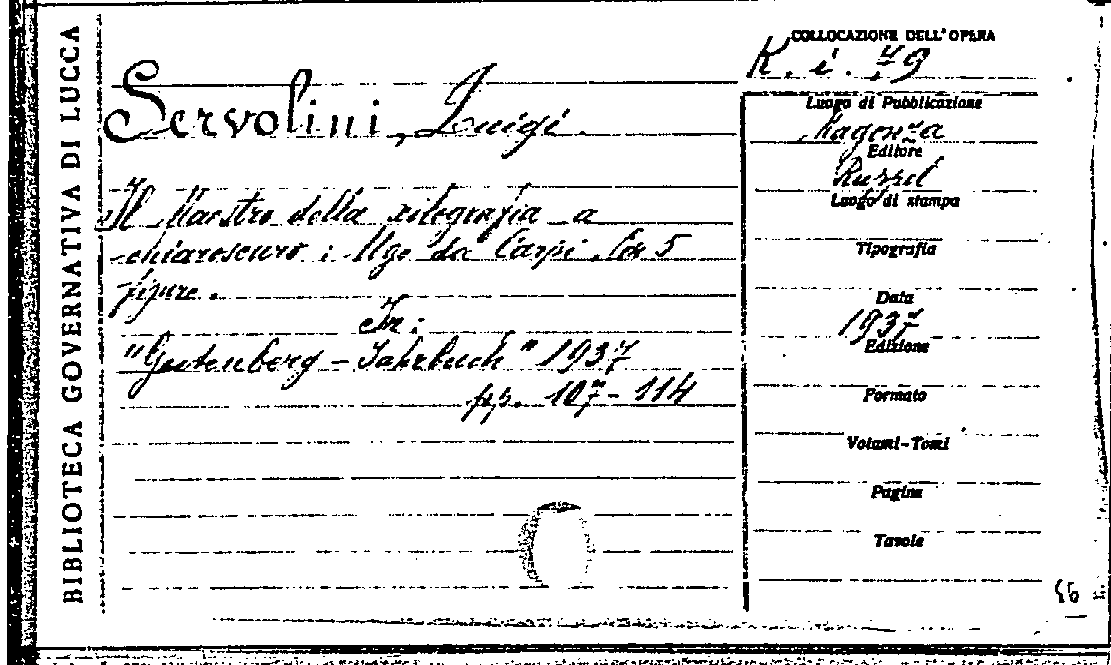 BIBLIOTECA GOVERNATIVA DI LUCCA
Servolini, Luigi.
Il Maestro della xilografia a
chiaroscuro: Ugo da Carpi. Con 5
figure.
In:
"Gutenberg-Jahrbuch" 1937
pp. 107-114
COLLOCAZIONE DELL'OPERA
K. i. 79
Luogo di Pubblicazione
Magonza
Editore
Ruppel
Luogo di stampa
Tipografia
Data
1937
Edizione
Formato
Volumi-Tomi
Pagine
Tavole